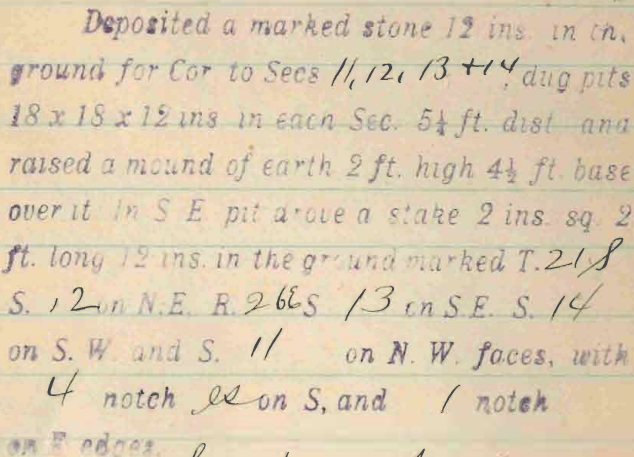 Deposited a marked stone 12 ins. in th.
ground for Cor to Secs 11, 12, 13 + 14, dug pits
18 x 18 x 12 ins in each Sec. 5½ ft. dist and
raised a mound of earth 2 ft. high 4½ ft. base
over it In S E pit drove a stake 2 ins. sq. 2
ft. long 12 ins. in the ground marked T. 21 S
S. 12 on N.E. R. 26E S 13 on S.E. S. 14
on S. W. and S. 11 on N. W. faces, with
4 notch es on S, and 1 notch
on E edges.